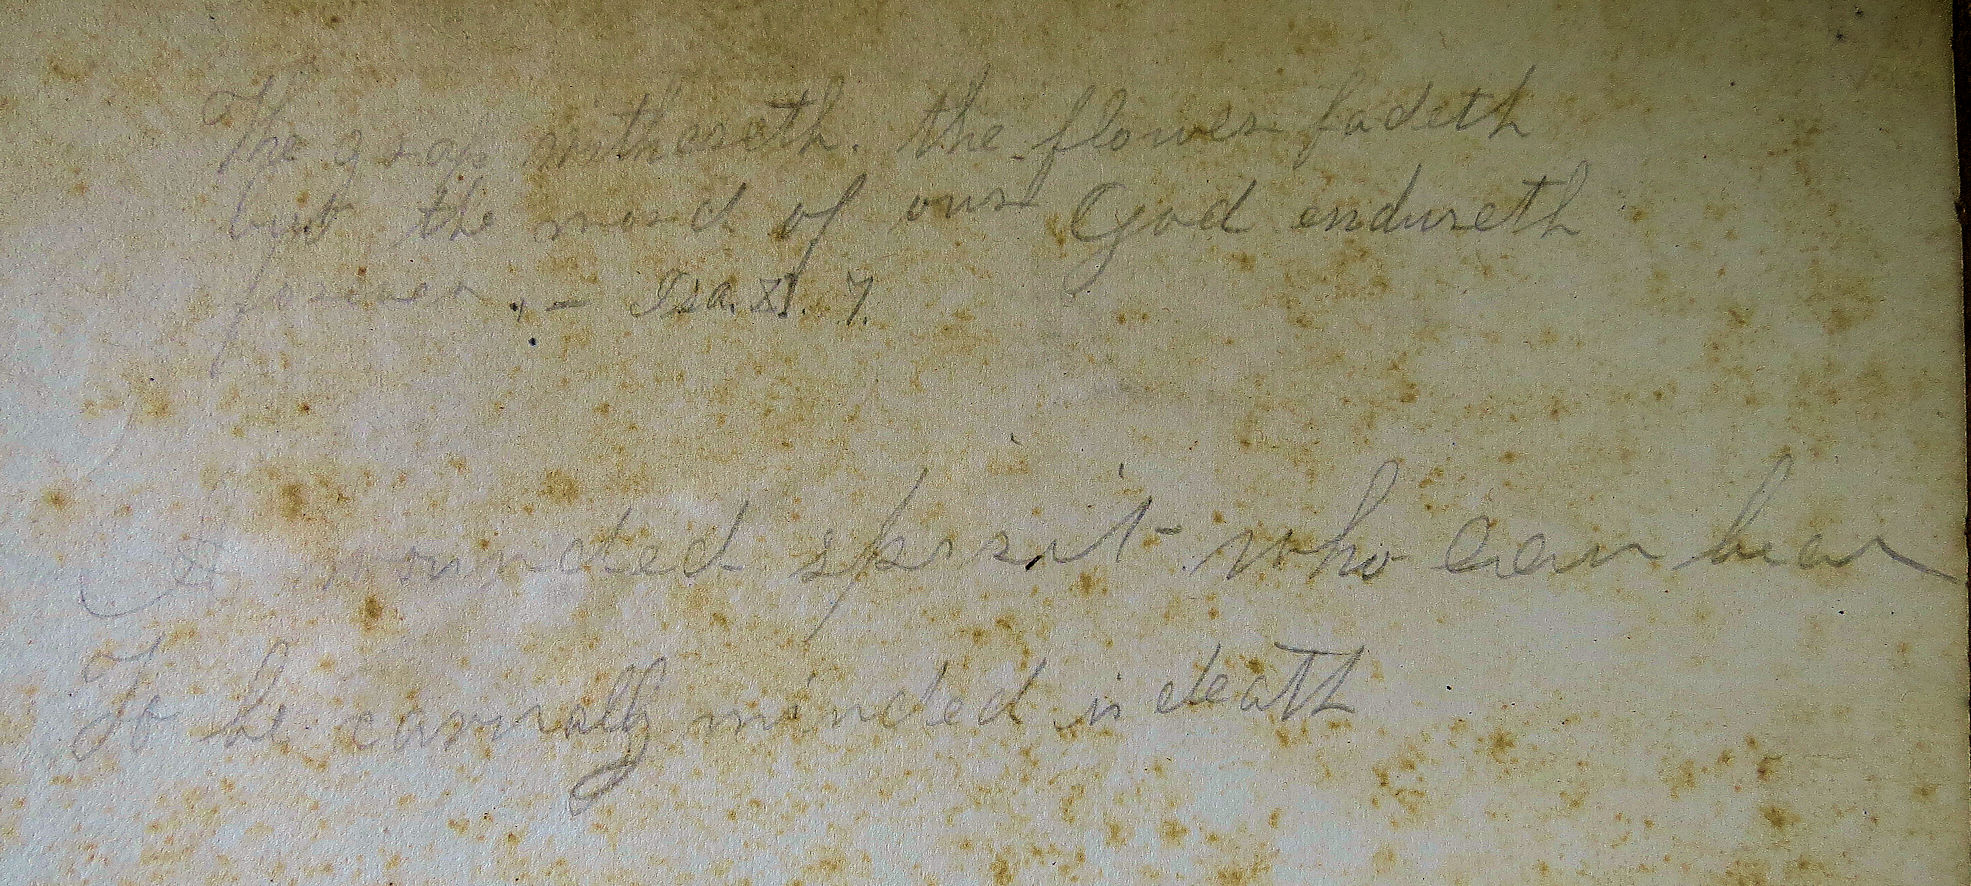 The grass withereth. the flower fadeth
but the word of our God endureth
forever. — Isa. XL. 7.
A wounded spirit who can bear
To be carnally minded is death